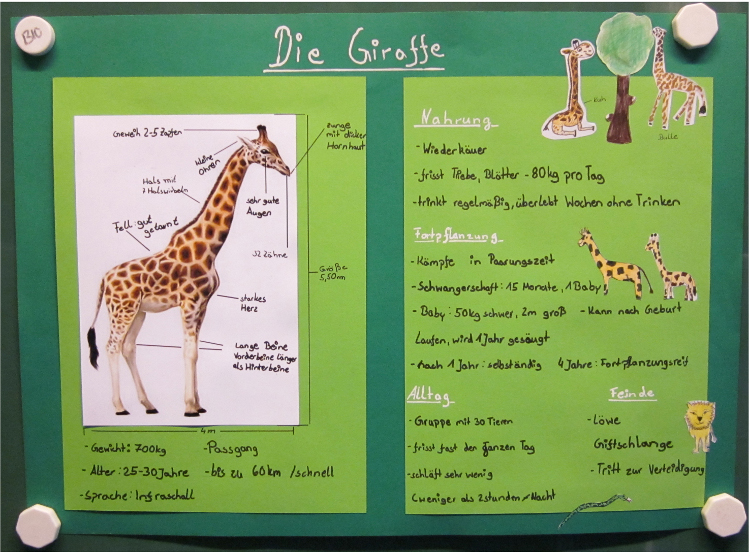 BIO
Die Giraffe
Geweih 2-5 Zapfen
zunge
mit dicker
Hornhaut
kleine
Ohren
Hals mit
7 Halswirbeln
sehr gute
Augen
Fell: gut
getarnt
32 Zähne
Größe
5,50m
starkes
Herz
Lange Beine
Vorderbeine länger
als Hinterbeine
4m
-Gewicht: 700kg
-Passgang
-Alter: 25-30 Jahre
-bis zu 60km /schnell
-Sprache: Infraschall
Kuh
Bulle
Nahrung
-Wiederkäuer
-frisst Triebe, Blätter - 80kg pro Tag
-trinkt regelmäßig, überlebt Wochen ohne Trinken
Fortpflanzung
-Kämpfe in Paarungszeit
-Schwangerschaft: 15 Monate, 1 Baby
-Baby: 50kg schwer, 2m groß -Kann nach Geburt
Laufen, wird 1 Jahr gesäugt
-nach 1 Jahr: selbständig 4 Jahre: Fortpflanzungsreif
Alltag
-Gruppe mit 30 Tieren
-frisst fast den ganzen Tag
-schläft sehr wenig
(weniger als 2 stunden/Nacht
Feinde
-Löwe
Giftschlange
-Tritt zur Verteidigung